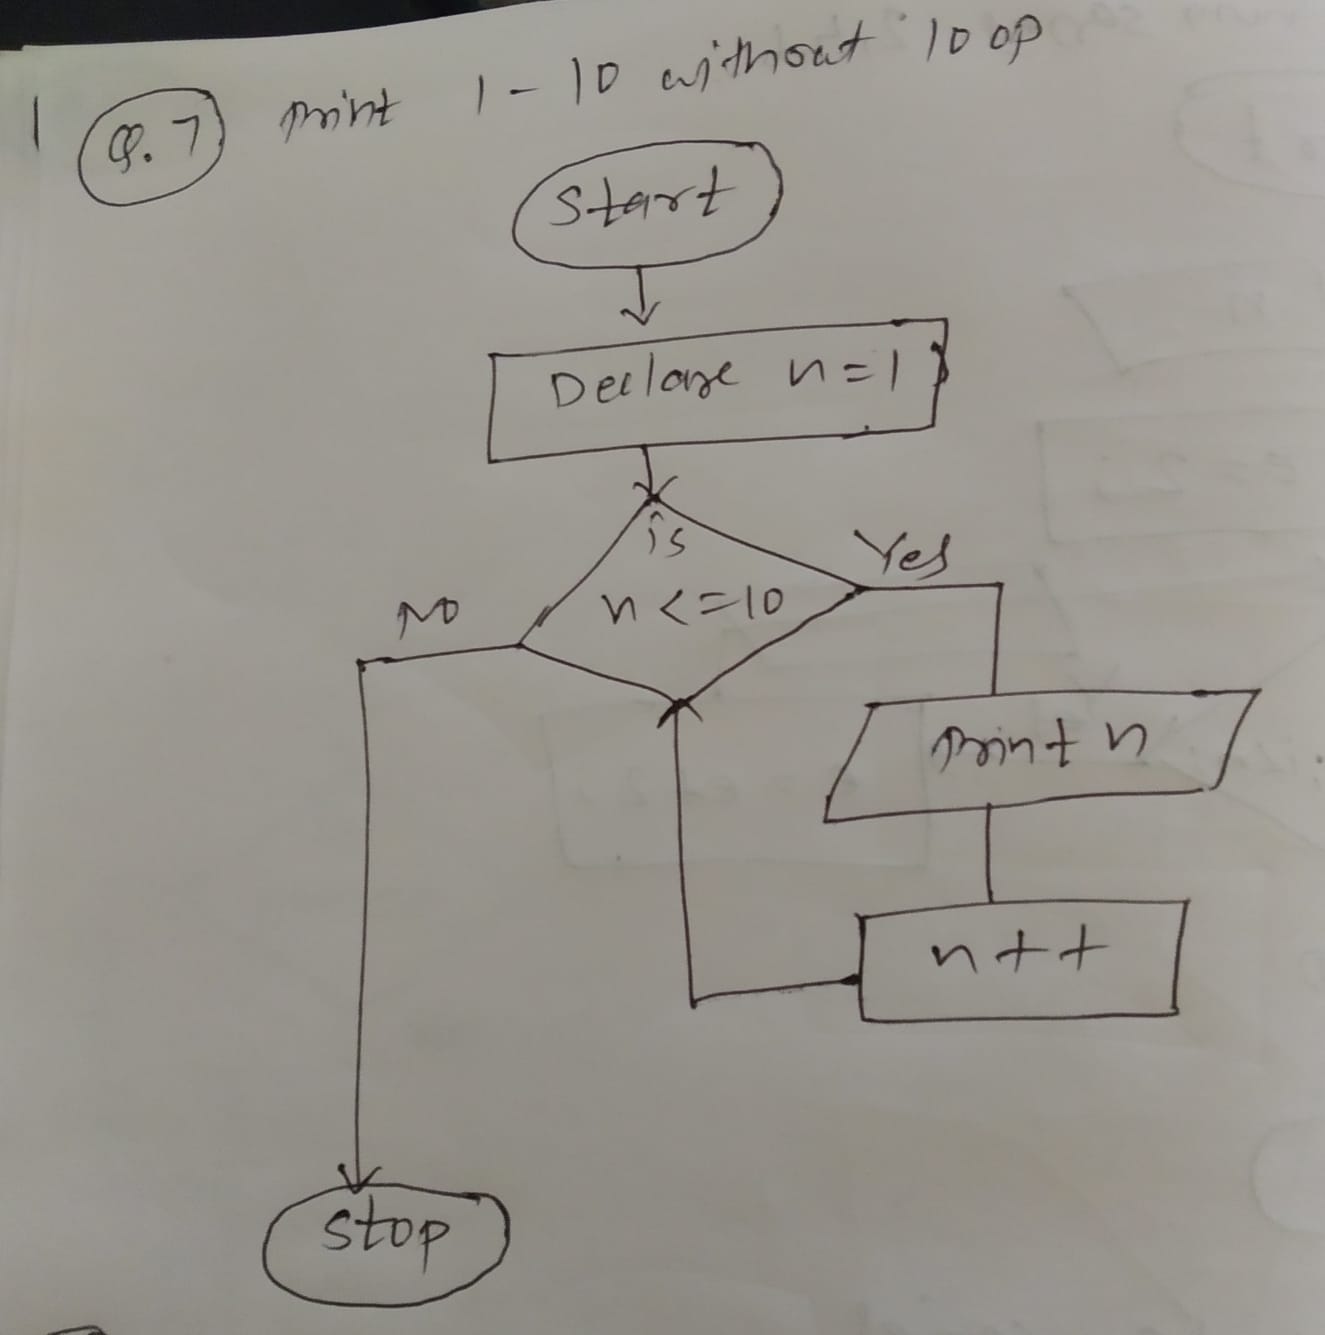 Q.7 print 1-10 without loop
Start
Declare n=1
is
n<=10
Yes
No
print n
n++
Stop